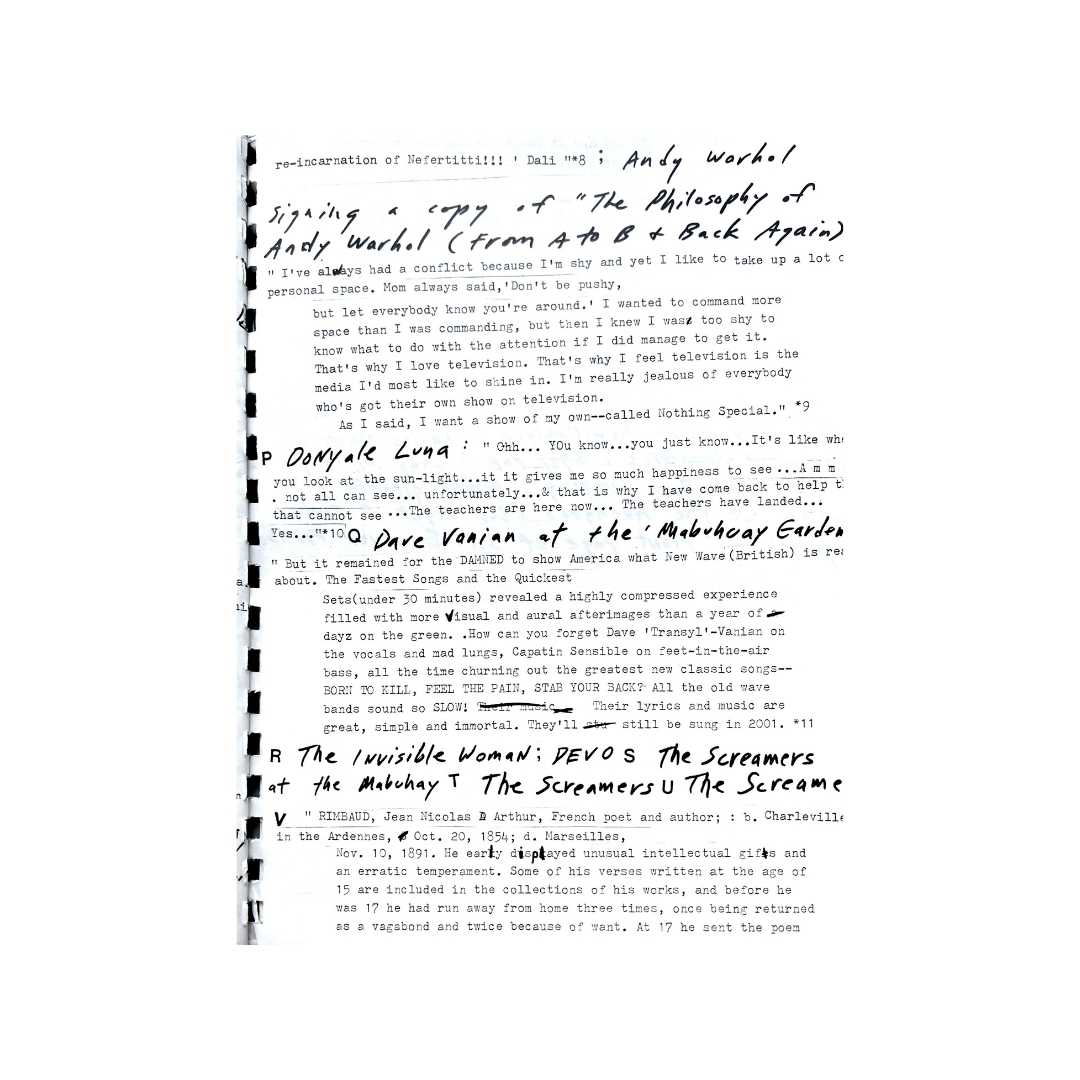 re-incarnation of Nefertitti!!! ' Dali "*8 ; Andy Warhol
signing a copy of "The Philosophy of
Andy Warhol (From A to B & Back Again)
" I've always had a conflict because I'm shy and yet I like to take up a lot
personal space. Mom always said,'Don't be pushy,
but let everybody know you're around.' I wanted to command more
space than I was commanding, but then I knew I was too shy to
know what to do with the attention if I did manage to get it.
That's why I love television. That's why I feel television is the
media I'd most like to shine in. I'm really jealous of everybody
who's got their own show on television.
As I said, I want a show of my own--called Nothing Special." *9
P Donyale Luna : " Ohh... YOu know...you just know...It's like
you look at the sun-light...it it gives me so much happiness to see ...A m m
. not all can see... unfortunately...& that is why I have come back to help
that cannot see ...The teachers are here now... The teachers have landed...
Yes..."*10 Q Dave Vanian at the ' Mabuhuay Garden
" But it remained for the DAMNED to show America what New Wave(British) is
about. The Fastest Songs and the Quickest
Sets(under 30 minutes) revealed a highly compressed experience
filled with more Visual and aural afterimages than a year of
dayz on the green. .How can you forget Dave 'Transyl'-Vanian on
the vocals and mad lungs, Capatin Sensible on feet-in-the-air
bass, all the time churning out the greatest new classic songs--
BORN TO KILL, FEEL THE PAIN, STAB YOUR BACK? All the old wave
bands sound so SLOW! Their music Their lyrics and music are
great, simple and immortal. They'll stu still be sung in 2001. *11
R The Invisible Woman; DEVO S The Screamers
at the Mabuhay T The Screamers U The Screame
V " RIMBAUD, Jean Nicolas Arthur, French poet and author; : b. Charleville
in the Ardennes, Oct. 20, 1854; d. Marseilles,
Nov. 10, 1891. He early displayed unusual intellectual gifts and
an erratic temperament. Some of his verses written at the age of
15 are included in the collections of his works, and before he
was 17 he had run away from home three times, once being returned
as a vagabond and twice because of want. At 17 he sent the poem